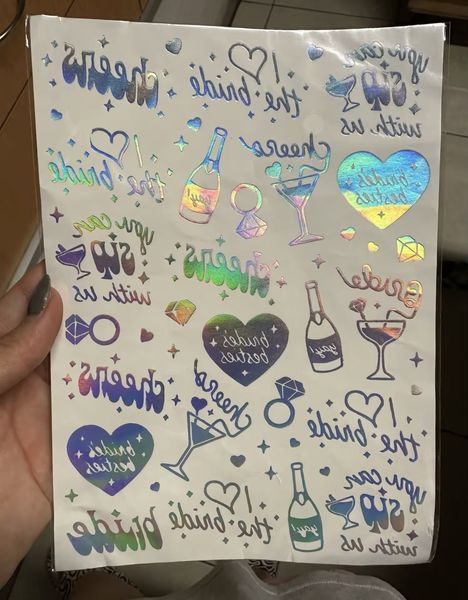 cheers
I
the bride
you can
sip
with us
I
the bride
yay!
cheers
bride's
besties
you can
sip
with us
cheers
yay!
Bride
bride's
besties
cheers
cheers
I
the bride
bride's
besties
bride
I
the bride
yay!
you can
sip
with us